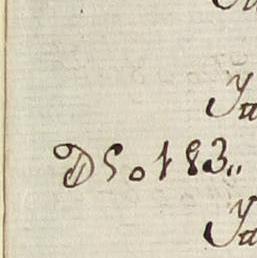 Ja
D S o 1 83„
Ja